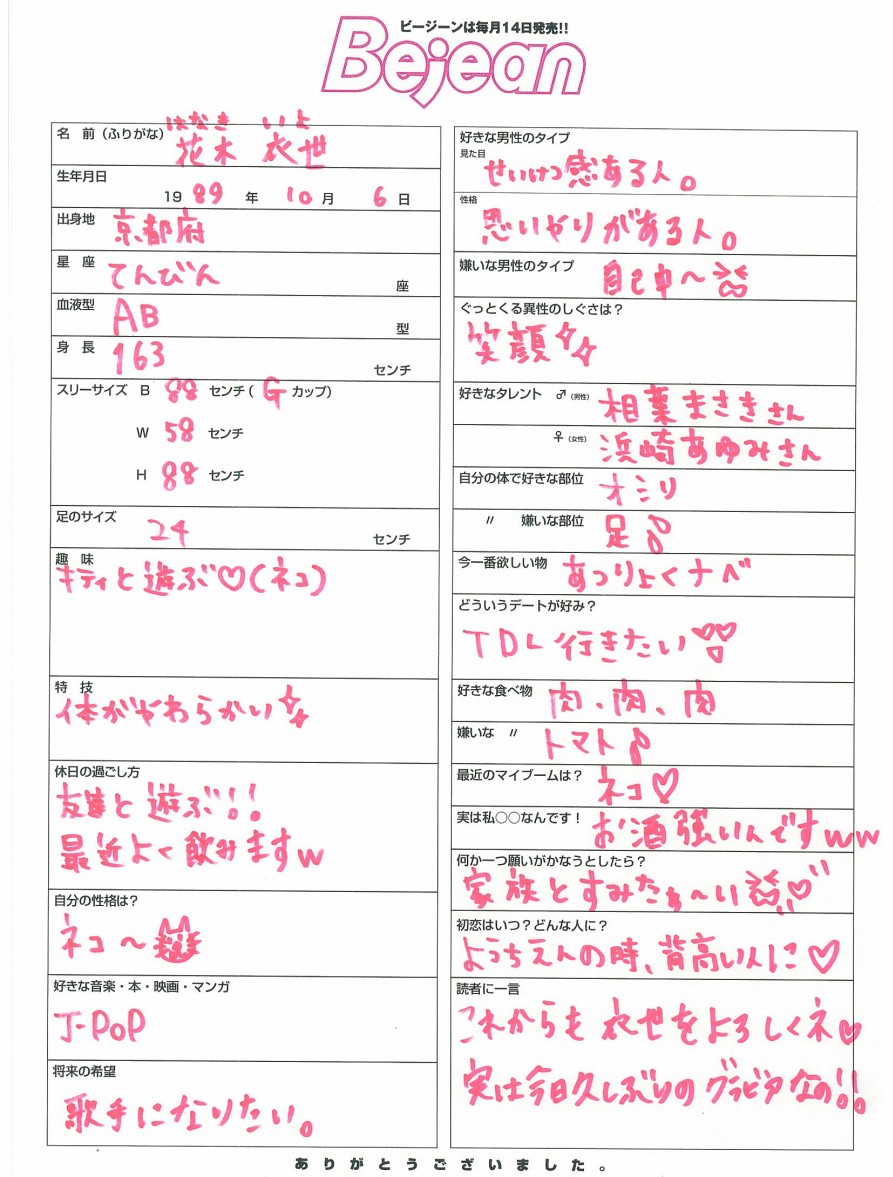 ビージーンは毎月14日発売!!
Bejean
名 前(ふりがな) はなき いと
花木 衣世
生年月日
1989年 10月 6日
出身地 京都府
星 座 てんびん 座
血液型 AB 型
身 長 163 センチ
スリーサイズ B 88 センチ( G カップ)
W 58 センチ
H 88 センチ
足のサイズ 24 センチ
趣 味
キティと遊ぶ♡(ネコ)
特 技
体がやわらかい☆
休日の過ごし方
友達と遊ぶ!!
最近よく飲みますw
自分の性格は?
ネコ〜
好きな音楽・本・映画・マンガ
J-POP
将来の希望
歌手になりたい。
好きな男性のタイプ
見た目 せいけつ感ある人。
性格
思いやりがある人。
嫌いな男性のタイプ 自己中〜
ぐっとくる異性のしぐさは?
笑顔☆
好きなタレント ♂(男性) 相葉まさきさん
♀(女性) 浜崎あゆみさん
自分の体で好きな部位 オシリ
〃 嫌いな部位 足♪
今一番欲しい物 あつりょくナベ
どういうデートが好み?
TDL行きたい♡♡
好きな食べ物 肉、肉、肉
嫌いな 〃 トマト♪
最近のマイブームは? ネコ♡
実は私○○なんです! お酒強いんですww
何か一つ願いがかなうとしたら?
家族とすみたぁ〜い♡
初恋はいつ?どんな人に?
ようちえんの時、背高い人に♡
読者に一言
これからも衣世をよろしくネ♡
実は今日久しぶりのグラビアなの!!
ありがとうございました。